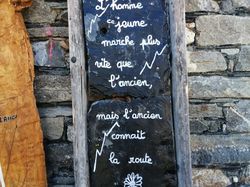 L'homme
jaune
marche plus
vite que
l'ancien,
mais l'ancien
connait
la route